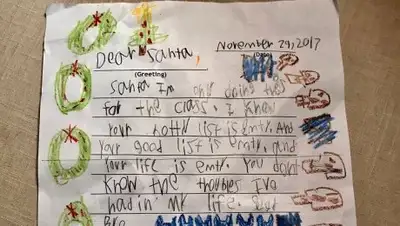 Dear Santa,
November 29, 2017
(Date)
(Greeting)
Santa Im only doing this
for the class. I know
your notty list is emty. And
your good list is emty. and
Your life is emty. You dont
know the troubles Ive
had in my life. Good
Bye